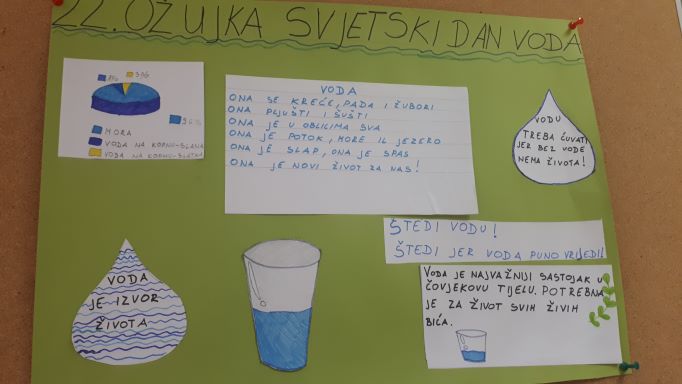 22. OŽUJKA SVJETSKI DAN VODA
3%
96%
MORA
VODA NA KOPNU-SLANA
VODA NA KOPNU-SLATKA
VODA
ONA SE KREĆE, PADA I ŽUBORI
ONA PLJUŠTI I ŠUŠTI
ONA JE U OBLICIMA SVA
ONA JE POTOK, MORE IL JEZERO
ONA JE SLAP, ONA JE SPAS
ONA JE NOVI ŽIVOT ZA NAS!
VODU
TREBA ČUVATI,
JER BEZ VODE
NEMA ŽIVOTA!
ŠTEDI VODU!
ŠTEDI JER VODA PUNO VRIJEDI!
VODA
JE IZVOR
ŽIVOTA
VODA JE NAJVAŽNIJI SASTOJAK U
ČOVJEKOVU TIJELU. POTREBNA
JE ZA ŽIVOT SVIH ŽIVIH
BIĆA.